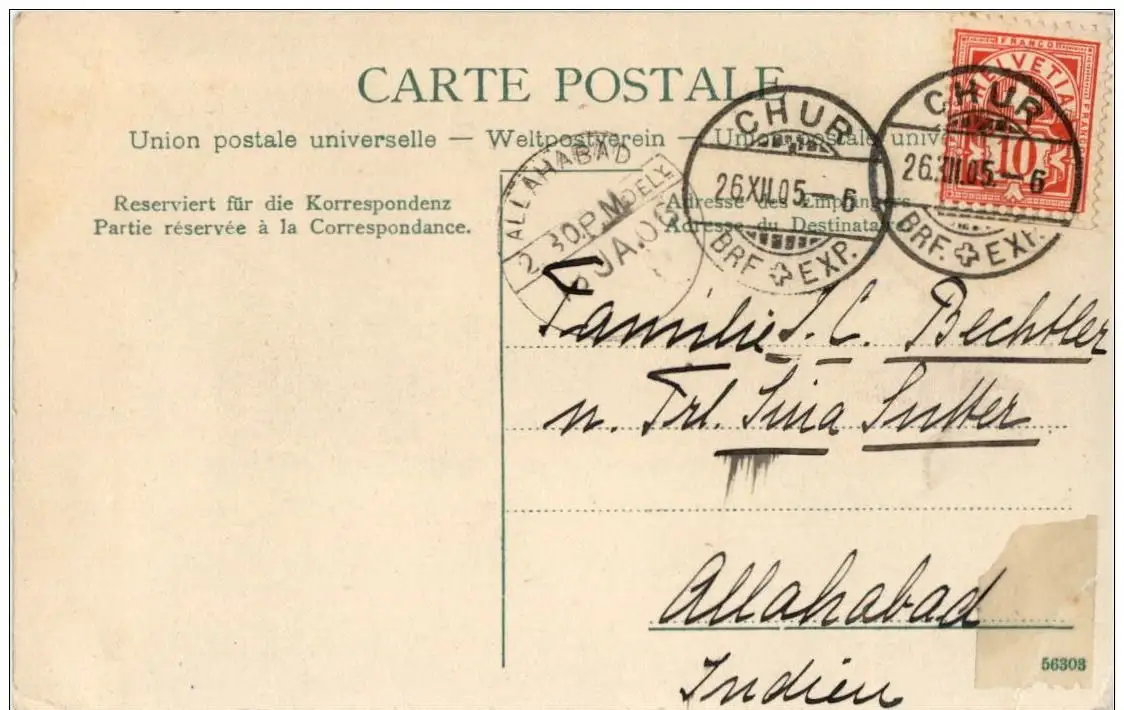 CARTE POSTALE
Union postale universelle — Weltpostverein — Union postale unive
Reserviert für die Korrespondenz
Partie réservée à la Correspondance.
Adresse des Empfängers
Adresse du Destinata
FRANCO
HELVETIA
FRANCO
10
CHUR
26.XII.05.—6
BRF. EXP.
CHUR
26.XII.05.—6
BRF. EXP.
ALLAHABAD
2.30.P.M. DELY.
JA.06
Familie J. C. Bechtler
u. Frl. Sina Sutter
Allahabad
Indien
56303